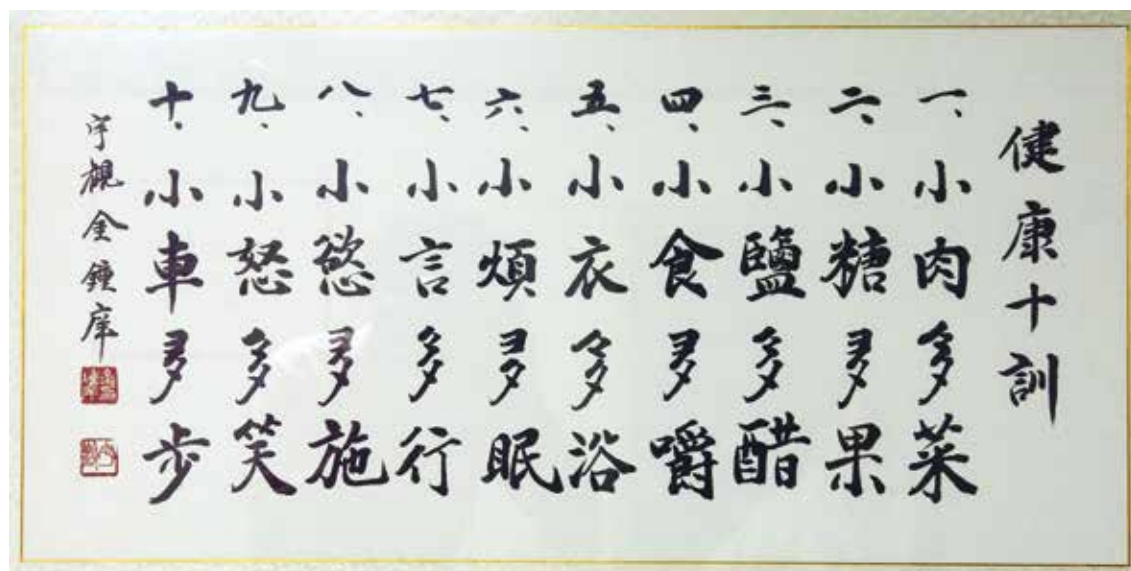 健康十訓
一、小肉多菜
二、小糖多果
三、小鹽多醋
四、小食多嚼
五、小衣多浴
六、小煩多眠
七、小言多行
八、小慾多施
九、小怒多笑
十、小車多步
金鍾